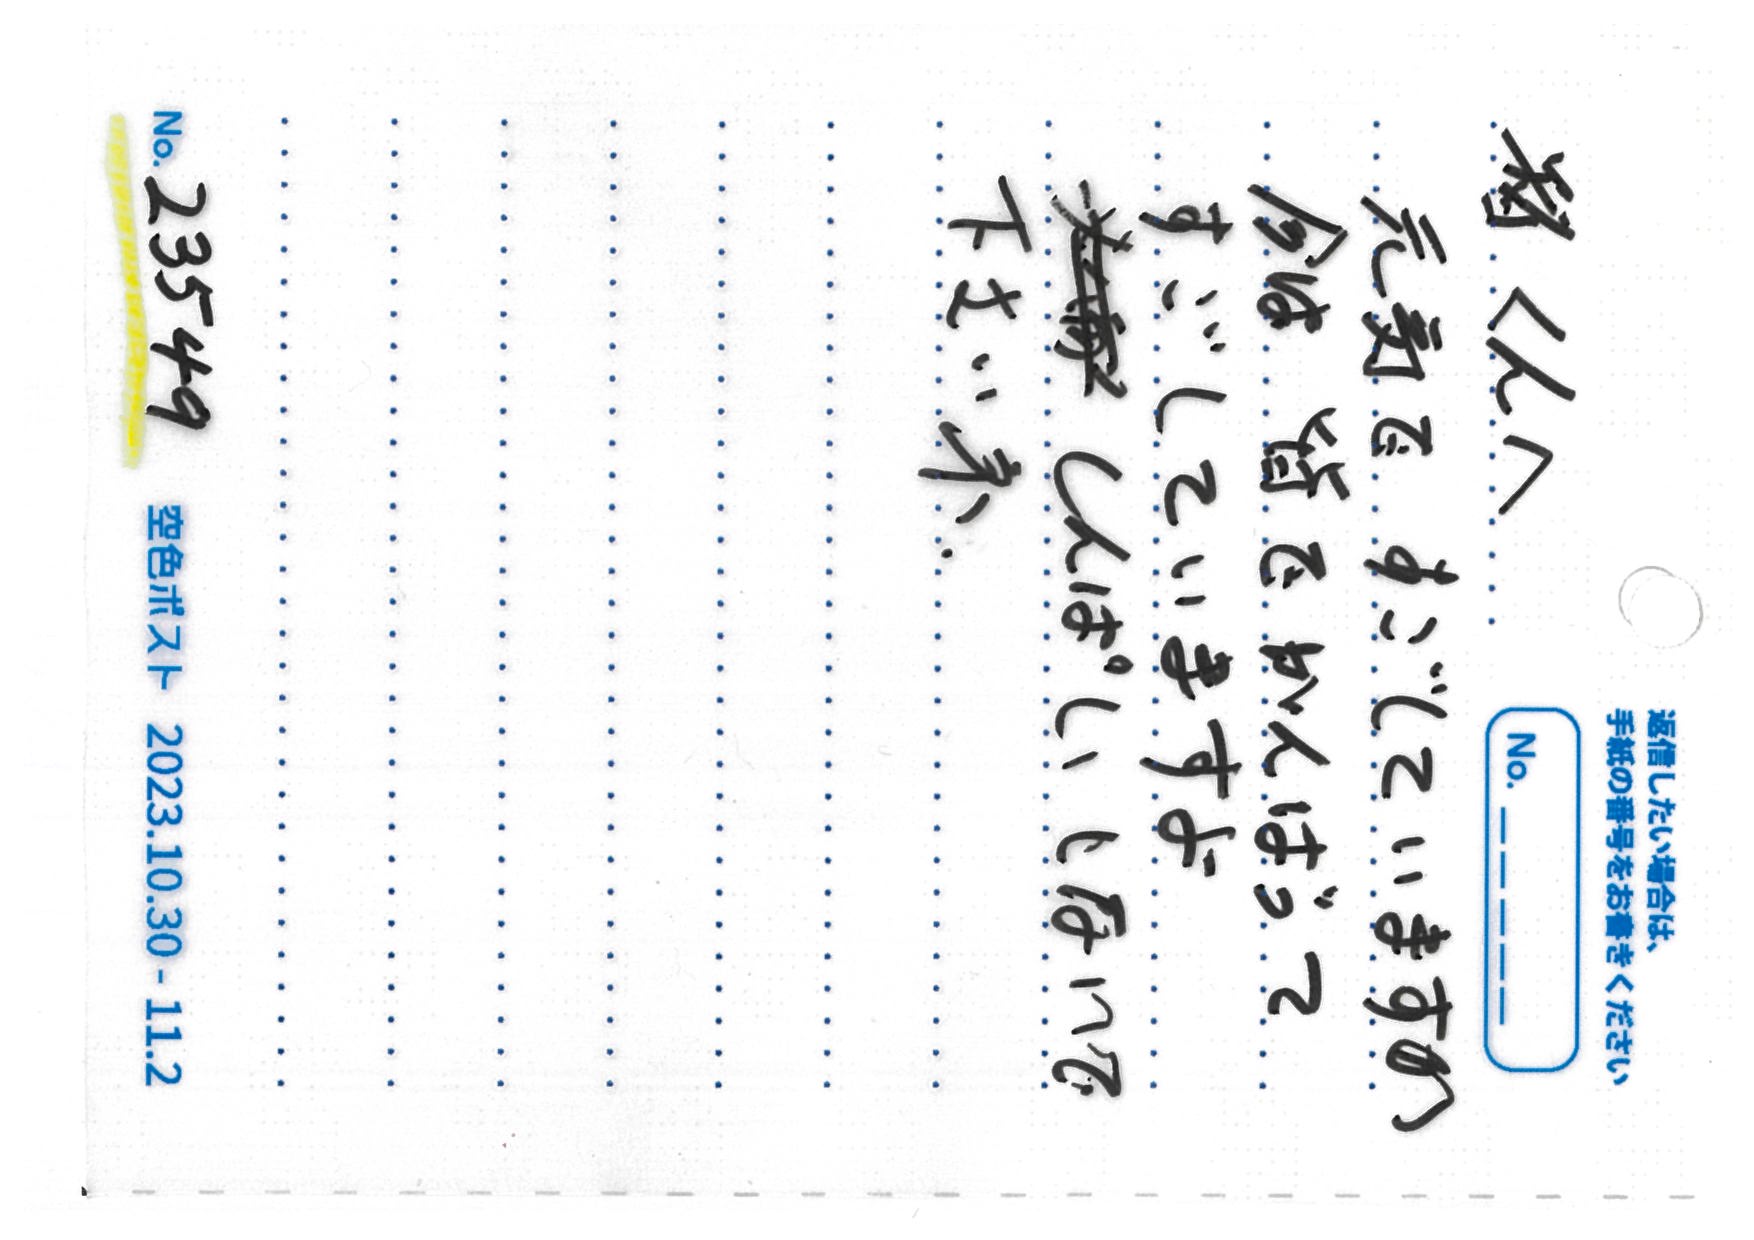 返信したい場合は、
手紙の番号をお書きください
No. _ _ _ _ _
くんへ
元気で すごしていますか
今は 皆で がんばって
すごしていますよ
しんぱいしないで
下さいネ.
No. 23549 空色ポスト 2023.10.30 - 11.2